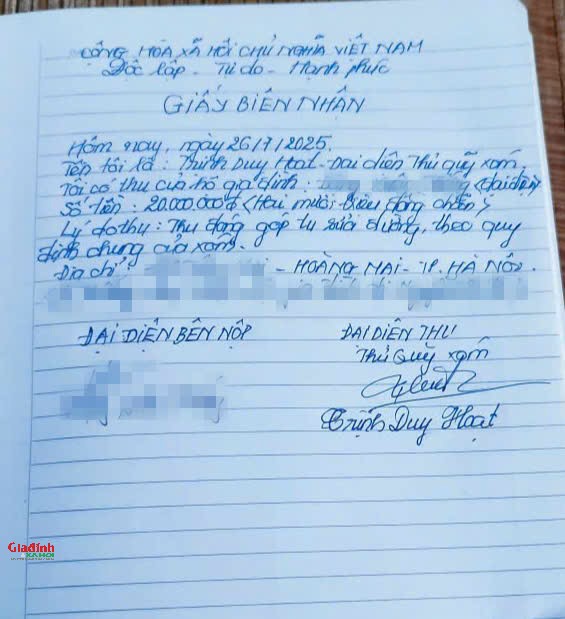 CỘNG HÒA XÃ HỘI CHỦ NGHĨA VIỆT NAM
Độc lập - Tự do - Hạnh phúc
GIẤY BIÊN NHẬN
Hôm nay, ngày 26/7/2025.
Tên tôi là: Trịnh Duy Hoạt - Đại diện Thủ quỹ xóm.
Tôi có thu của hộ gia đình: (đại diện)
Số tiền: 20.000.000đ (Hai mươi triệu đồng chẵn)
Lý do thu: Thu đóng góp tu sửa đường, theo quy
định chung của xóm.
Địa chỉ: - HOÀNG MAI - TP. HÀ NỘI.
ĐẠI DIỆN BÊN NỘP
ĐẠI DIỆN THU
Thủ quỹ xóm
Trịnh Duy Hoạt
Giađình
XÃ HỘI